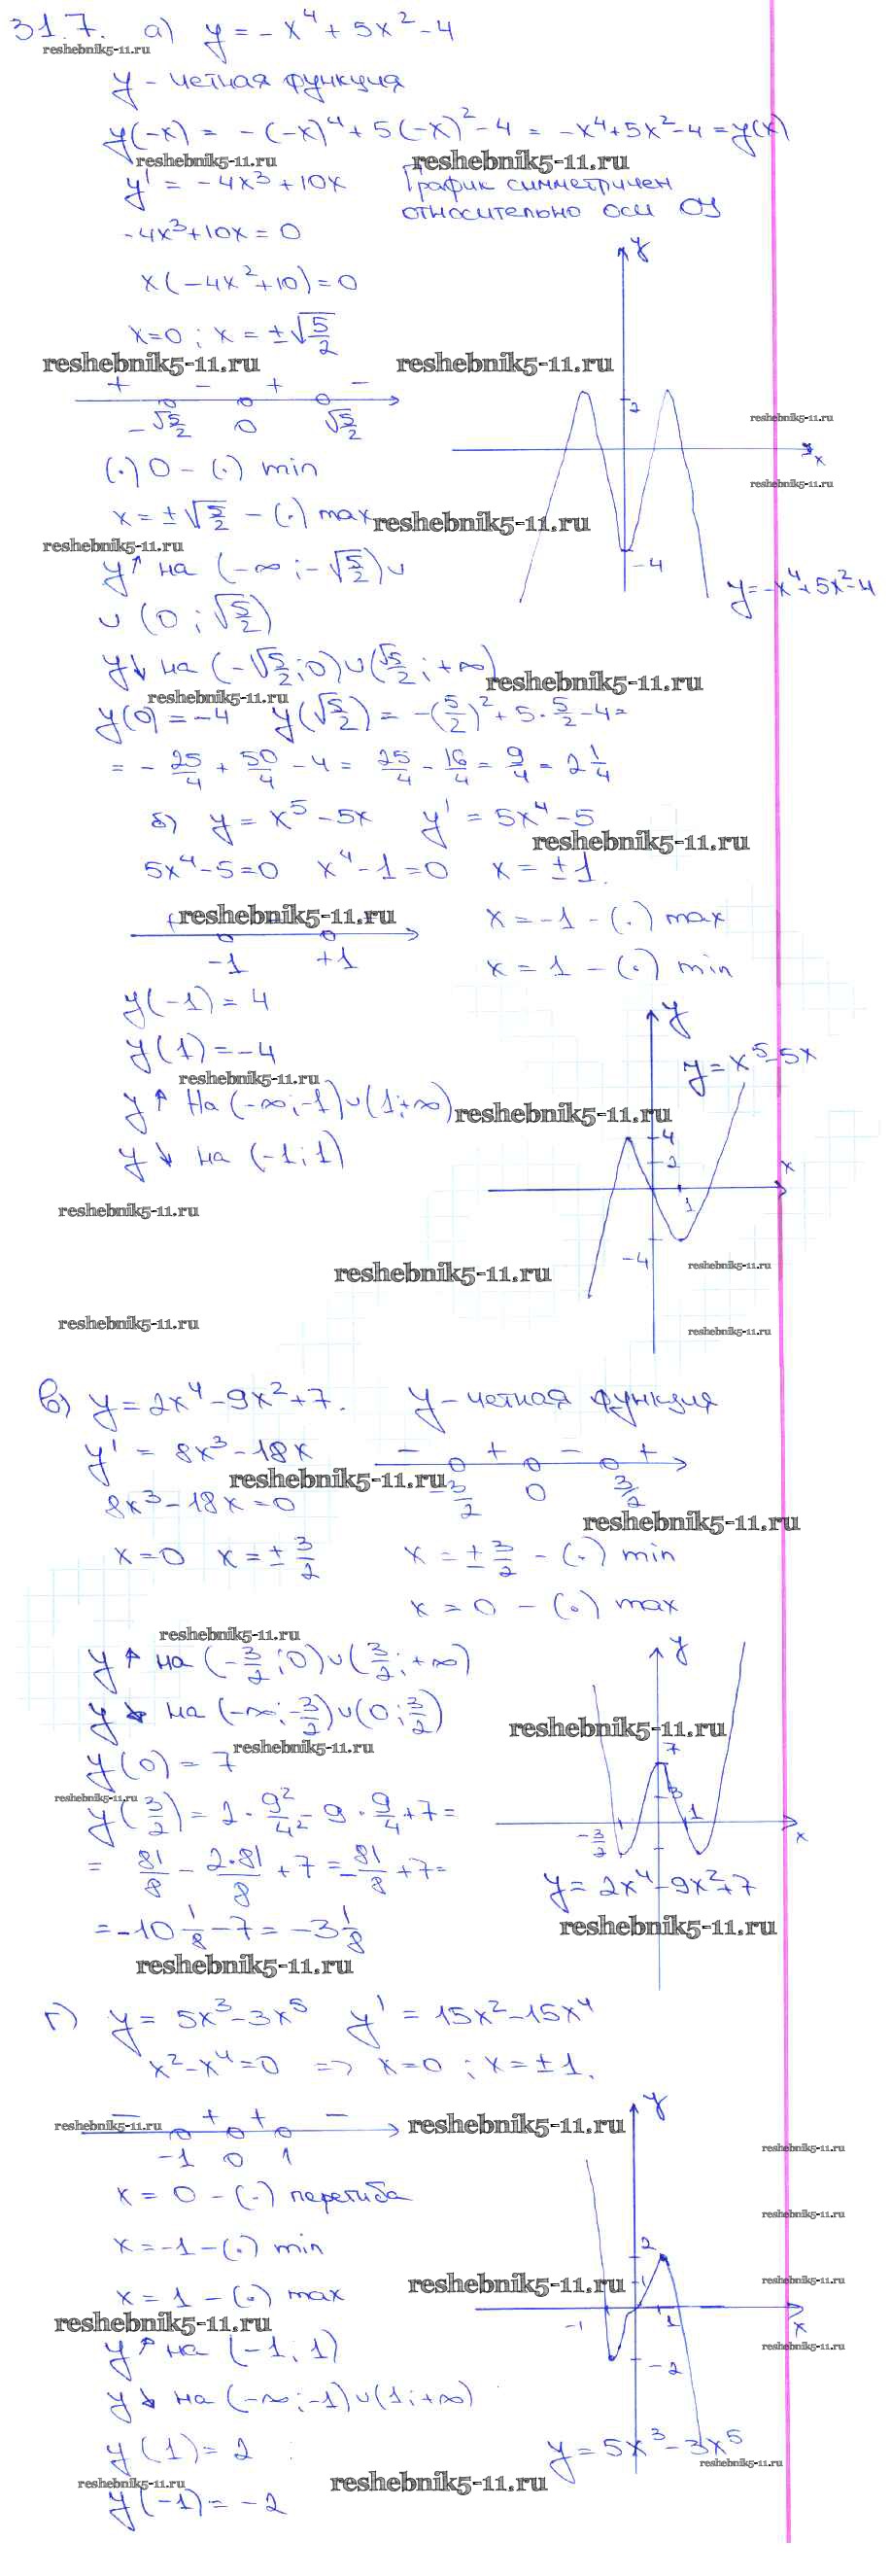 31.7. а) y = -x⁴ + 5x² - 4
reshebnik5-11.ru
y - четная функция
y(-x) = -(-x)⁴ + 5(-x)² - 4 = -x⁴ + 5x² - 4 = y(x)
reshebnik5-11.ru reshebnik5-11.ru
y' = -4x³ + 10x График симметричен
относительно оси OY
-4x³ + 10x = 0
x(-4x² + 10) = 0
x = 0 ; x = ±√5/2
reshebnik5-11.ru reshebnik5-11.ru
+ - + -
-√5/2 0 √5/2
y
2
x
-4
y = -x⁴ + 5x² - 4
reshebnik5-11.ru
reshebnik5-11.ru
(·) 0 - (·) min
x = ±√5/2 - (·) max
reshebnik5-11.ru
reshebnik5-11.ru
y↑ на (-∞ ; -√5/2) ∪
∪ (0 ; √5/2)
y↓ на (-√5/2 ; 0) ∪ (√5/2 ; +∞)
reshebnik5-11.ru
reshebnik5-11.ru
y(0) = -4 y(√5/2) = -(5/2)² + 5·5/2 - 4 =
= -25/4 + 50/4 - 4 = 25/4 - 16/4 = 9/4 = 2 1/4
б) y = x⁵ - 5x y' = 5x⁴ - 5
reshebnik5-11.ru
5x⁴ - 5 = 0 x⁴ - 1 = 0 x = ±1.
reshebnik5-11.ru
-1 +1
x = -1 - (·) max
x = 1 - (·) min
y(-1) = 4
y(1) = -4
reshebnik5-11.ru
y↑ на (-∞ ; -1) ∪ (1 ; +∞)
reshebnik5-11.ru
y↓ на (-1 ; 1)
y
y = x⁵ - 5x
4
2
x
1
-4
reshebnik5-11.ru
reshebnik5-11.ru
reshebnik5-11.ru
reshebnik5-11.ru
reshebnik5-11.ru
в) y = 2x⁴ - 9x² + 7. y - четная функция
y' = 8x³ - 18x
- + - +
-3/2 0 3/2
reshebnik5-11.ru
8x³ - 18x = 0
reshebnik5-11.ru
x = 0 x = ±3/2 x = ±3/2 - (·) min
x = 0 - (·) max
reshebnik5-11.ru
y↑ на (-3/2 ; 0) ∪ (3/2 ; +∞)
y↓ на (-∞ ; -3/2) ∪ (0 ; 3/2)
reshebnik5-11.ru
reshebnik5-11.ru
y(0) = 7
reshebnik5-11.ru
y(3/2) = 2·9²/4² - 9·9/4 + 7 =
= 81/8 - 2·81/8 + 7 = -81/8 + 7 =
= -10 1/8 - 7 = -3 1/8
reshebnik5-11.ru
y
7
3
1
-3/2
x
y = 2x⁴ - 9x² + 7
reshebnik5-11.ru
г) y = 5x³ - 3x⁵ y' = 15x² - 15x⁴
x² - x⁴ = 0 => x = 0 ; x = ±1.
reshebnik5-11.ru
- + + -
-1 0 1
reshebnik5-11.ru
x = 0 - (·) перегиба
x = -1 - (·) min
x = 1 - (·) max
reshebnik5-11.ru
reshebnik5-11.ru
y↑ на (-1 ; 1)
y↓ на (-∞ ; -1) ∪ (1 ; +∞)
y(1) = 2
reshebnik5-11.ru
y(-1) = -2
y
2
1
-1
1
x
-2
y = 5x³ - 3x⁵
reshebnik5-11.ru
reshebnik5-11.ru
reshebnik5-11.ru
reshebnik5-11.ru
reshebnik5-11.ru
reshebnik5-11.ru